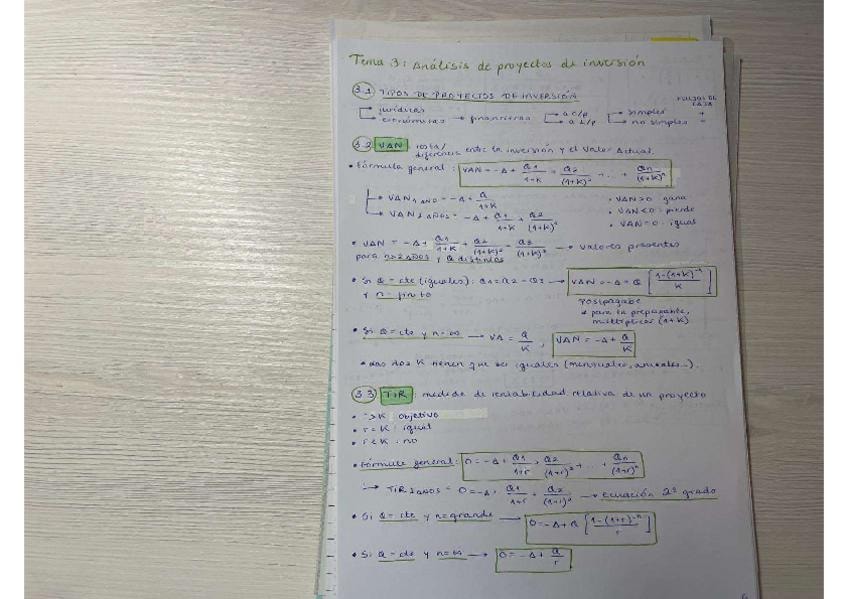 Tema 3: Análisis de proyectos de inversión
3.1 TIPOS DE PROYECTOS DE INVERSIÓN
jurídicas
económicas → financieras
a c/p
a L/p
simples
no simples
FLUJOS DE CAJA
+
-
3.2 VAN: resta/
diferencia entre la inversión y el Valor Actual.
• Fórmula general: VAN = -A + Q1/(1+K) + Q2/(1+K)² + ... + Qn/(1+K)ⁿ
→ VAN 1 AÑO = -A + Q/(1+K)
→ VAN 2 AÑOS = -A + Q1/(1+K) + Q2/(1+K)²
• VAN>0 : gana
• VAN<0 : pierde
• VAN=0 : igual
• VAN = -A + Q1/(1+K) + Q2/(1+K)² + Q3/(1+K)³ → valores presentes
para n>2 AÑOS y Q distintos
• Si Q = cte (iguales): Q1=Q2=Q3 → VAN = -A + Q [(1-(1+K)⁻ⁿ)/K]
y n = finito
Pospagable
* para la prepagable,
multiplicar (1+K)
• Si Q = cte y n=∞ → VA = Q/K , VAN = -A + Q/K
* Las dos K tienen que ser iguales (mensuales, anuales...).
3.3 TIR: medida de rentabilidad relativa de un proyecto
• r>K : objetivo
• r=K : igual
• r<K : no
• Fórmula general: 0 = -A + Q1/(1+r) + Q2/(1+r)² + ... + Qn/(1+r)ⁿ
→ TIR 2 AÑOS = 0 = -A + Q1/(1+r) + Q2/(1+r)² → ecuación 2º grado
• Si Q = cte y n=grande → 0 = -A + Q [(1-(1+r)⁻ⁿ)/r]
• Si Q = cte y n=∞ → 0 = -A + Q/r